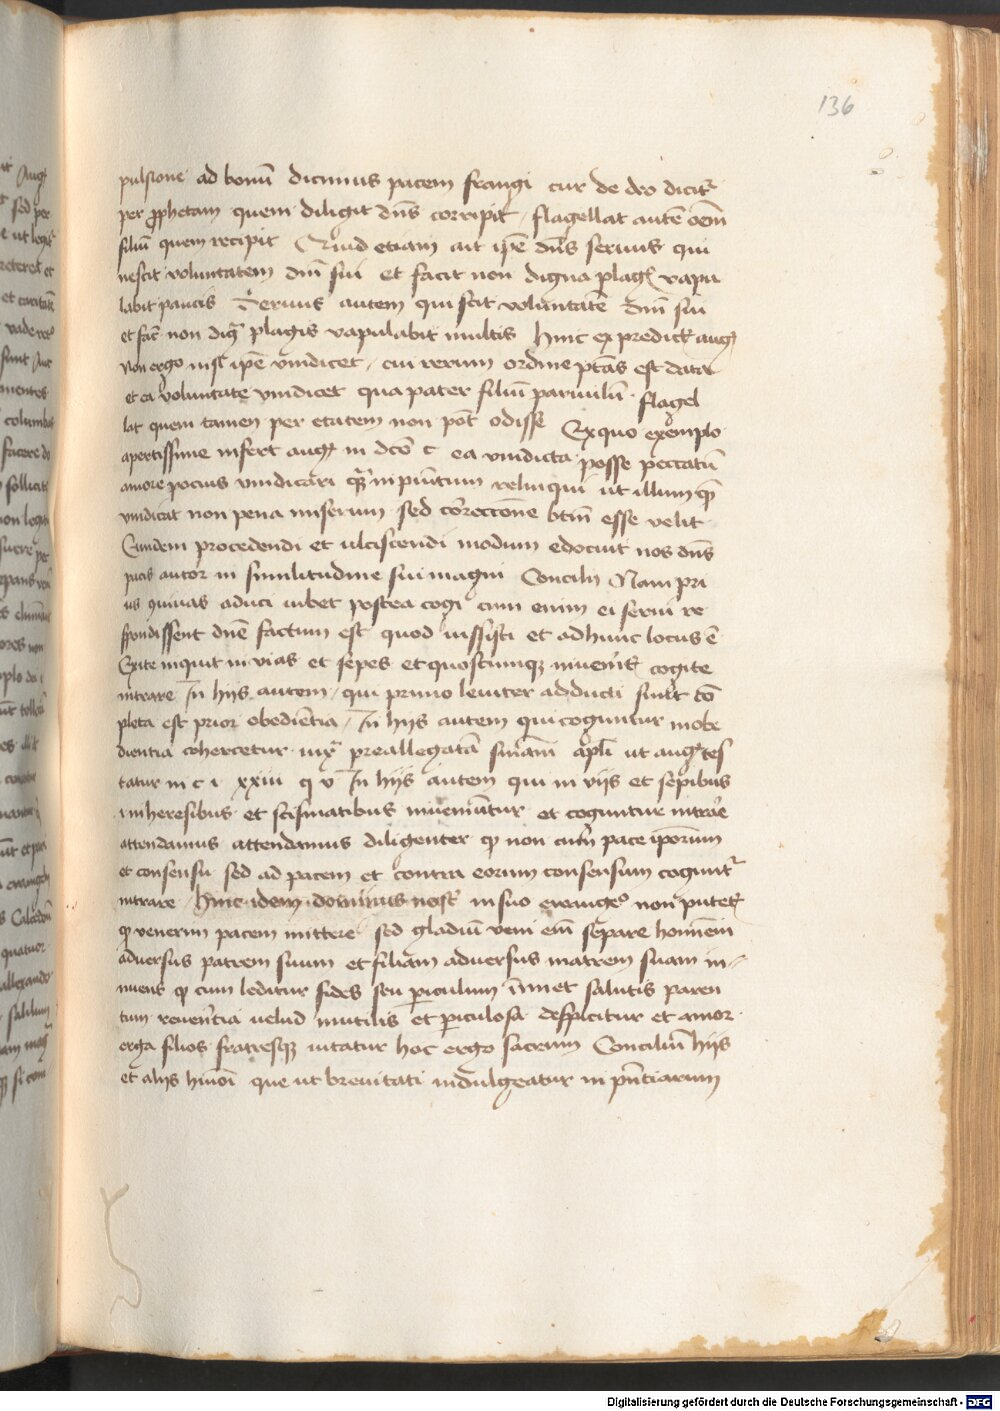 136
pulsione ad bonū dicimus pacem frangi cur de deo dicit᷑
per ꝓphetam quem diligit dn̄s corripit / flagellat autē oēm
filiū quem recipit Quid etiam ait ip̄e dn̄s seruus qui
nescit voluntatem dn̄i sui et facit non digna plagꝭ vapu
labit paucis Seruus autem qui scit voluntatē dn̄i sui
et fac̄ non diḡ plagis vapulabit multis hinc ex predictꝭ augꝰ
Non ergo nisi ip̄e vindicet / cui rerum ordine ptās est data
et ea voluntate vindicet qua pater filiū paruulū flagel
lat quem tamen per etatem non pōt odisse Ex quo exemplo
apertissime infert augꝰ in dcō c ea vindicta posse peccatū
amore pocius vindicari qᷓ inpunitum relinqui ut illum qē
vindicat non pena miserum sed correccione btm̄ esse velit
Eundem procedendi et ulciscendi modum edocuit nos dn̄s
pacis autor in similitudine sui magni Concilij Nam pri
us ꝯuiuas aduci iubet postea cogi cum enim ei serui re
spondissent dn̄e factum est quod iussisti et adhuc locus ē
Exite inquit in vias et sepes et quoscumqꝫ inuenītꝭ cogite
intrare In hijs autem / qui primo leuiter adducti sunt cō
pleta est prior obediētia / In hijs autem qui coguntur inobe
dientia cohercetur iuxᷓ preallegatā sn̄iam apl̄i ut augꝰ tes
tatur in c i xxiii q v In hijs autem qui in vijs et sepibus
i in heresibus et scismatibus inueniūtur et coguntur intrāe
attendamus attendamus diligenter ꝙ non cum pace ip̄orum
et consensu sed ad pacem et contra eorum consensum cogunt᷑
intrare hinc idem dominus nost᷑ in suo ewangeᵒ non putetꝭ
ꝙ venerim pacem mittere sed gladiū veni em̄ separare hominem
aduersus patrem suum et filiam aduersus matrem suam in⸗
nuens ꝙ cum leditur fides seu ꝑiculum īminet salutis paren
tum reuerētia velud inutilis et ꝑiculosa despicitur et amor
erga filios fratresqꝫ vitatur hoc ergo sacrum Conciliū hijs
et alijs hmōi que ut breuitati indulgeatur in pn̄tiarum
Digitalisierung gefördert durch die Deutsche Forschungsgemeinschaft - DFG